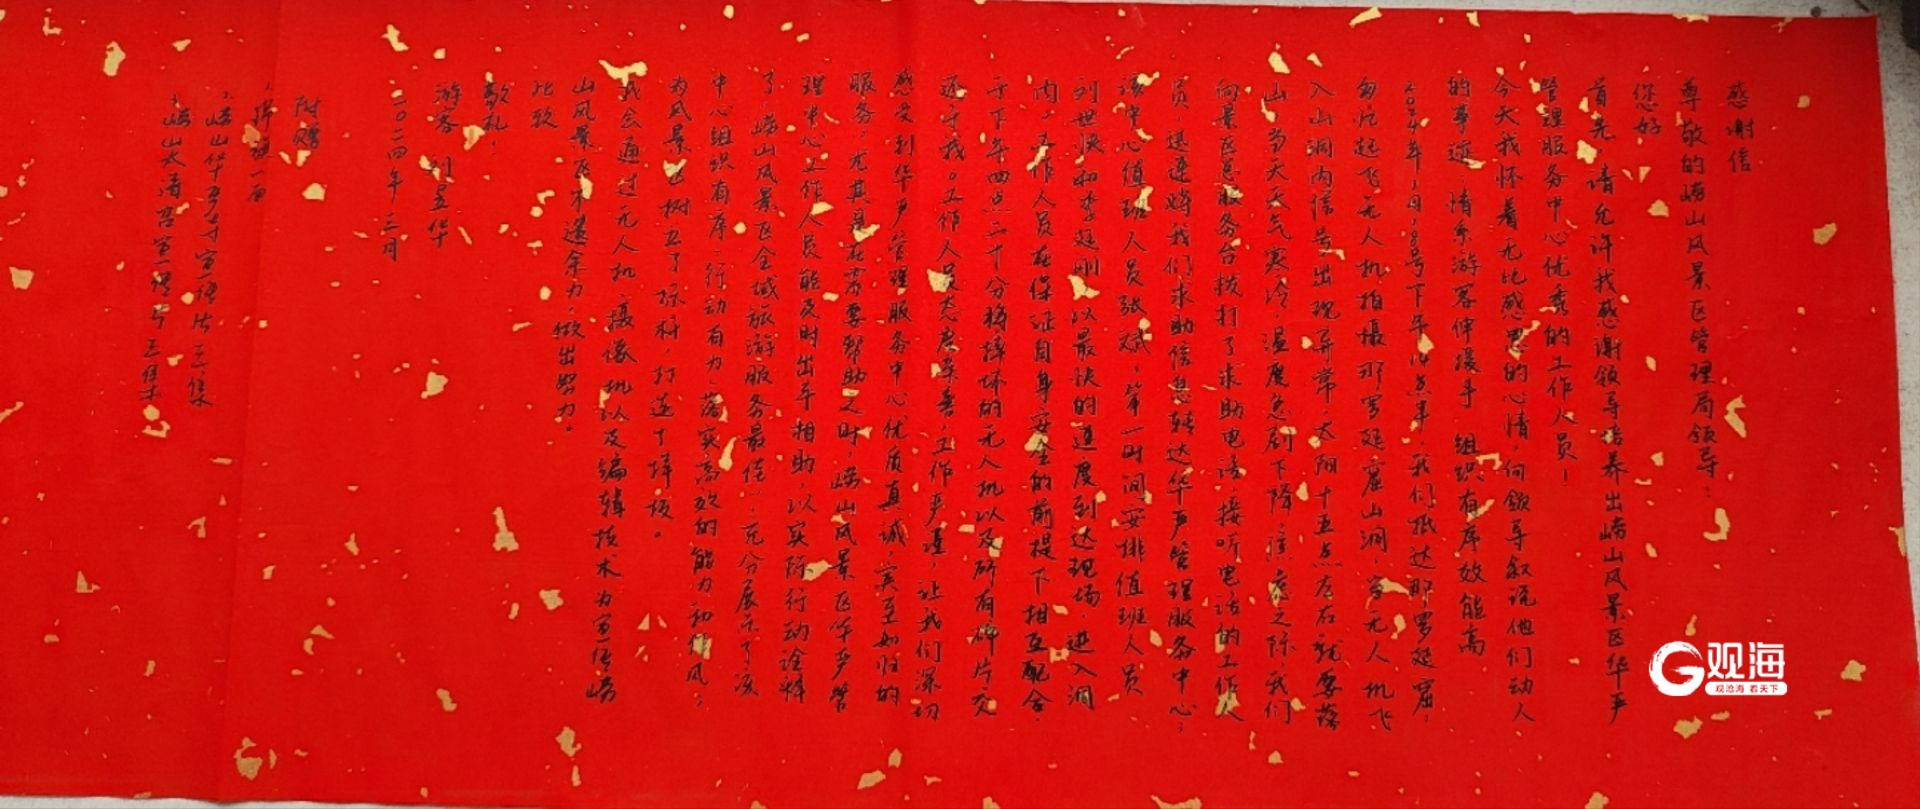 感谢信
尊敬的崂山风景区管理局领导：
您好
首先，请允许我感谢领导培养出崂山风景区华严
管理服务中心优秀的工作人员！
今天我怀着无比感恩的心情，向领导叙说他们动人
的事迹，情系游客伸援手，组织有序效能高
号下午14点半，我们抵达那罗延窟，
匆忙起飞无人机拍摄那罗延窟山洞，当无人机飞
入山洞内信号出现异常，太阳十五点左右就要落
山，当天天气寒冷，温度急剧下降，焦虑之际，我们
向景区总服务台拨打了求助电话，接听电话的工作人
员，迅速将我们求助信息转达华严管理服务中心，
该中心值班人员张斌，第一时间安排值班人员
刘世快和李延刚，以最快的速度到达现场，进入洞
内，工作人员在保证自身安全的前提下相互配合，
于下午四点二十分将摔坏的无人机以及所有碎片交
还于我。工作人员态度亲善，工作严谨，让我们深切
感受到华严管理服务中心优质真诚，宾至如归的
服务，尤其是在需要帮助之时，崂山风景区华严管
理中心工作人员能及时出手相助，以实际行动诠释
了，崂山风景区全域旅游服务最佳，充分展示了该
中心组织有序，行动有力，落实高效的能力和作风，
为风景区树立了标杆，打造了样板。
我会通过无人机，摄像机以及编辑技术为宣传崂
山风景区不遗余力，做出努力。
此致
敬礼！
游客 刘立华
二〇二四年三月
附赠
锦旗一面
崂山华严寺宣传片三集
崂山太清宫宣传片三集
观海
观沧海 看天下